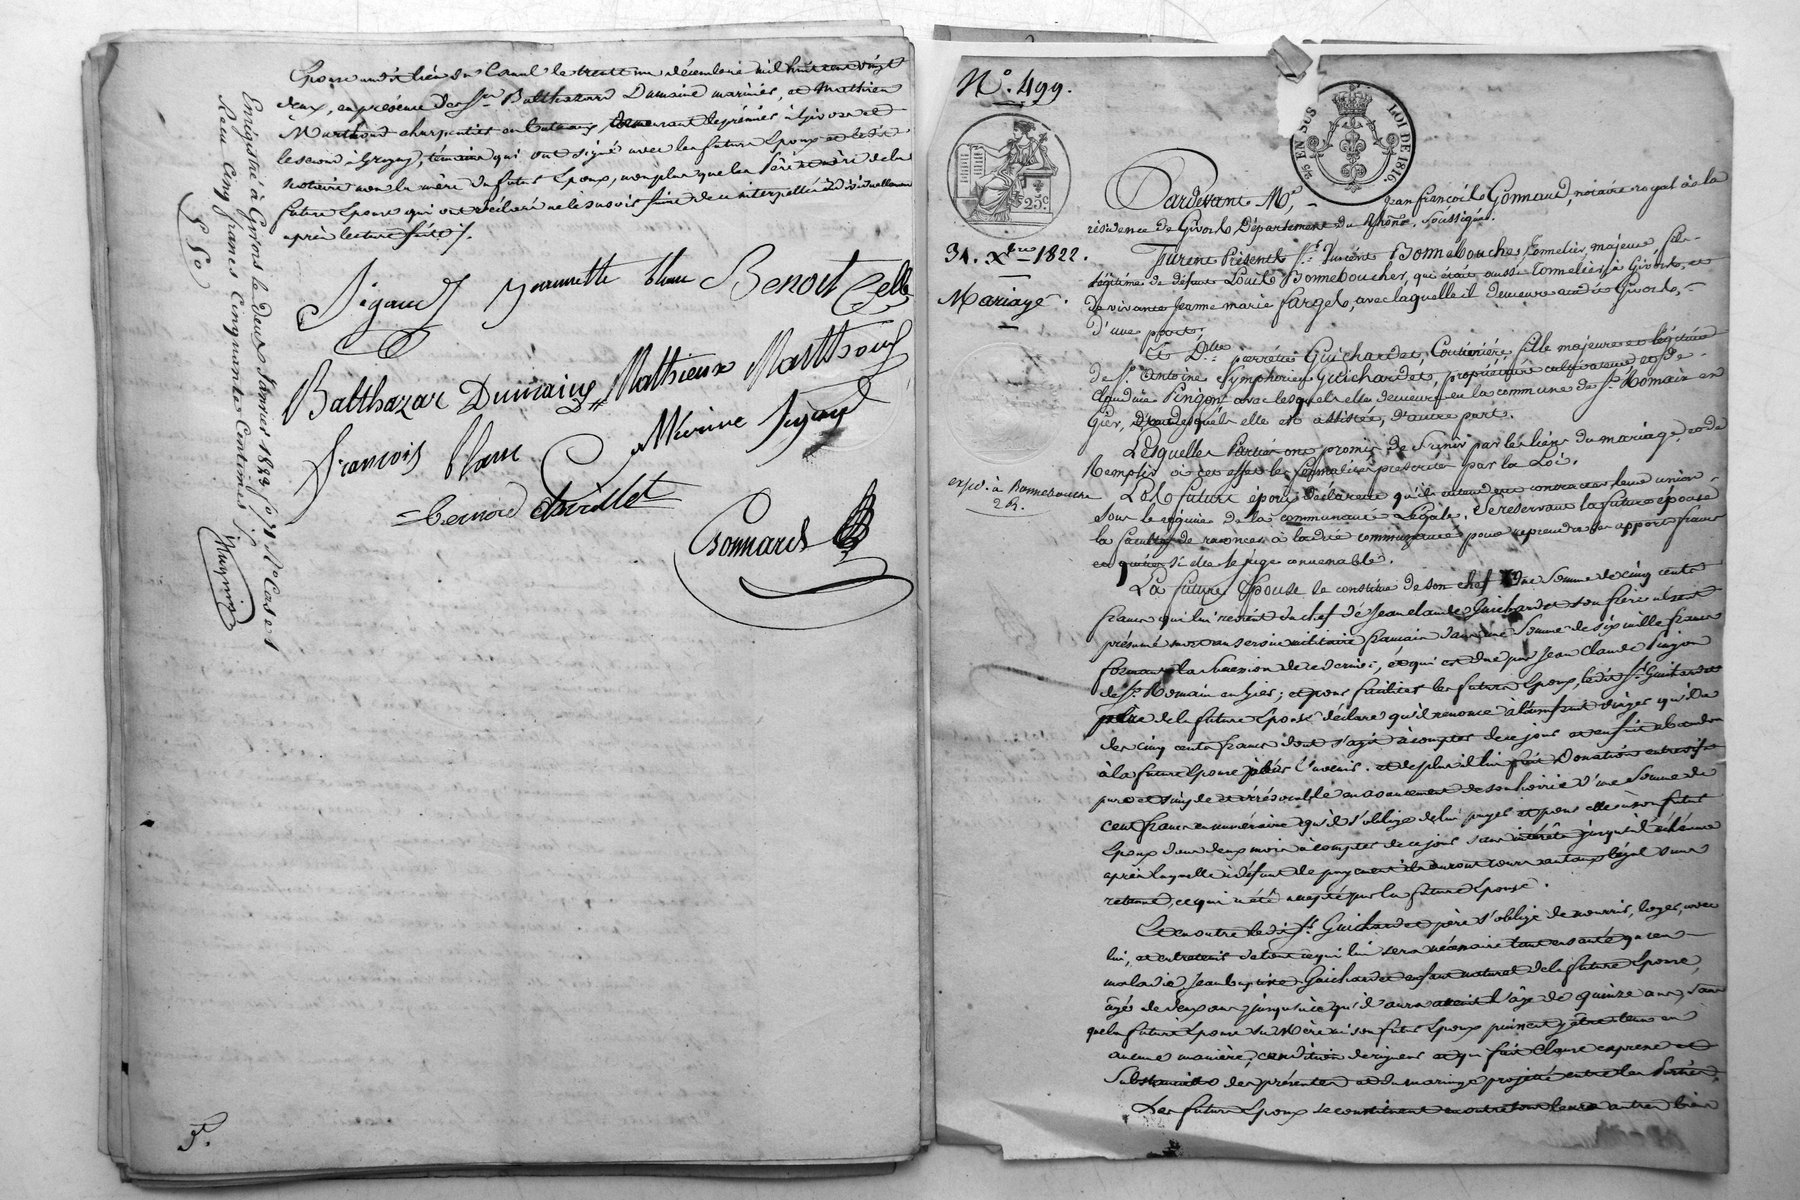 Epouse audit lieu du Canal le trente un décembre mil huit cent vingt
deux, en présence des Srs Balthazard Dumaine marinier, et Mathieu
Marthoud charpentier en bateaux, demeurant le premier à Givors et
le second à Grigny, témoins qui ont signé avec les futurs Epoux et le
notaire non la mère du futur Epoux, non plus que les Père et mère de la
future Epouse qui ont déclaré ne le savoir faire de ce interpellés individuellement
après lecture faite ./.
Sigaud Jeannette blanc Benoit Celle
Balthazar Dumaine Mathieux Marthoud
françois blanc Sigaud
Gonnard
Enrégistré à Givors le deux Janvier 1823 fo 71 Ro Cases 1
Reçu Cinq francs Cinquante Centimes
5 50
5.
No. 499.
25c
EN SUS
LOI DE 1816.
31. Xbre 1822.
Mariage.
exp. à Bonnebouche
2 R.
Pardevant Me. Jean françois Gonnard, notaire royal à la
résidence de Givors Département du Rhône, soussigné.
Furent Présents Sr. Vincent Bonnebouche, Tonnelier, majeur, fils
légitime de défunt Louis Bonnebouche, qui était aussi Tonnelier à Givors, et
de vivante Jeanne marie fargot, avec laquelle il demeure audit Givors,
d'une part;
Et Dlle. pierrette Guichardet, Couturière, fille majeure et légitime
de Sr. Antoine Symphorien Guichardet, propriétaire cultivateur et de
Claudine Pingon avec lesquels elle demeure en la commune de St. Romain en
Gier, desquels elle est assistée, d'autre part.
Lesquelles Parties ont promis de s'unir par les liens du mariage, et de
Remplir à cet effet les formalités prescrites par la Loi.
Les futurs époux déclarent qu'ils entendent contracter leur union
sous le régime de la communauté Légale. Se réservant la future épouse
la faculté de renoncer à ladite communauté pour reprendre son apport franc
et quitte si elle le juge convenable.
La future Epouse se constitue de son chef Une Somme de cinq cents
francs qui lui revient du chef de Jean claude Guichardet son frère
présumé mort au service militaire français dans une Somme de six mille francs
formant la Succession de ce dernier, et qui est due par Jean Claude Pingon
de St. Romain en Gier; et pour faciliter les futurs Epoux, ledit Sr. Guichardet
père de la future Epouse déclare qu'il renonce à l'usufruit
des cinq cents francs dont s'agit à compter de ce jour et en fait abandon
à la future Epouse pour l'avenir. et de plus il lui fait Donation entre vifs
pure et simple et irrévocable en avancement de son hoirie d'une Somme de
cent francs en numéraire qu'il s'oblige de lui payer et pour elle à son futur
Epoux dans deux mois à compter de ce jour sans intérêts jusqu'à l'échéance
après laquelle à défaut de payement ils auront cours au taux légal sans
retenue, ce qui a été accepté par la future Epouse.
Et en outre ledit Sr. Guichardet père s'oblige de nourrir, loger, avec
lui, et entretenir de tout ce qui lui sera nécessaire tant en santé qu'en
maladie Jean baptiste Guichardet enfant naturel de la future Epouse,
âgé de deux ans, jusqu'à ce qu'il aura atteint l'âge de quinze ans, sans
que la future Epouse sa Mère ni son futur Epoux puissent y être tenus en
aucune manière, condition de rigueur et qui fait Clause expresse et
Substantielle des présentes et du mariage projetté entre les Parties.
Les futurs Epoux se constituent en outre tous leurs autres biens